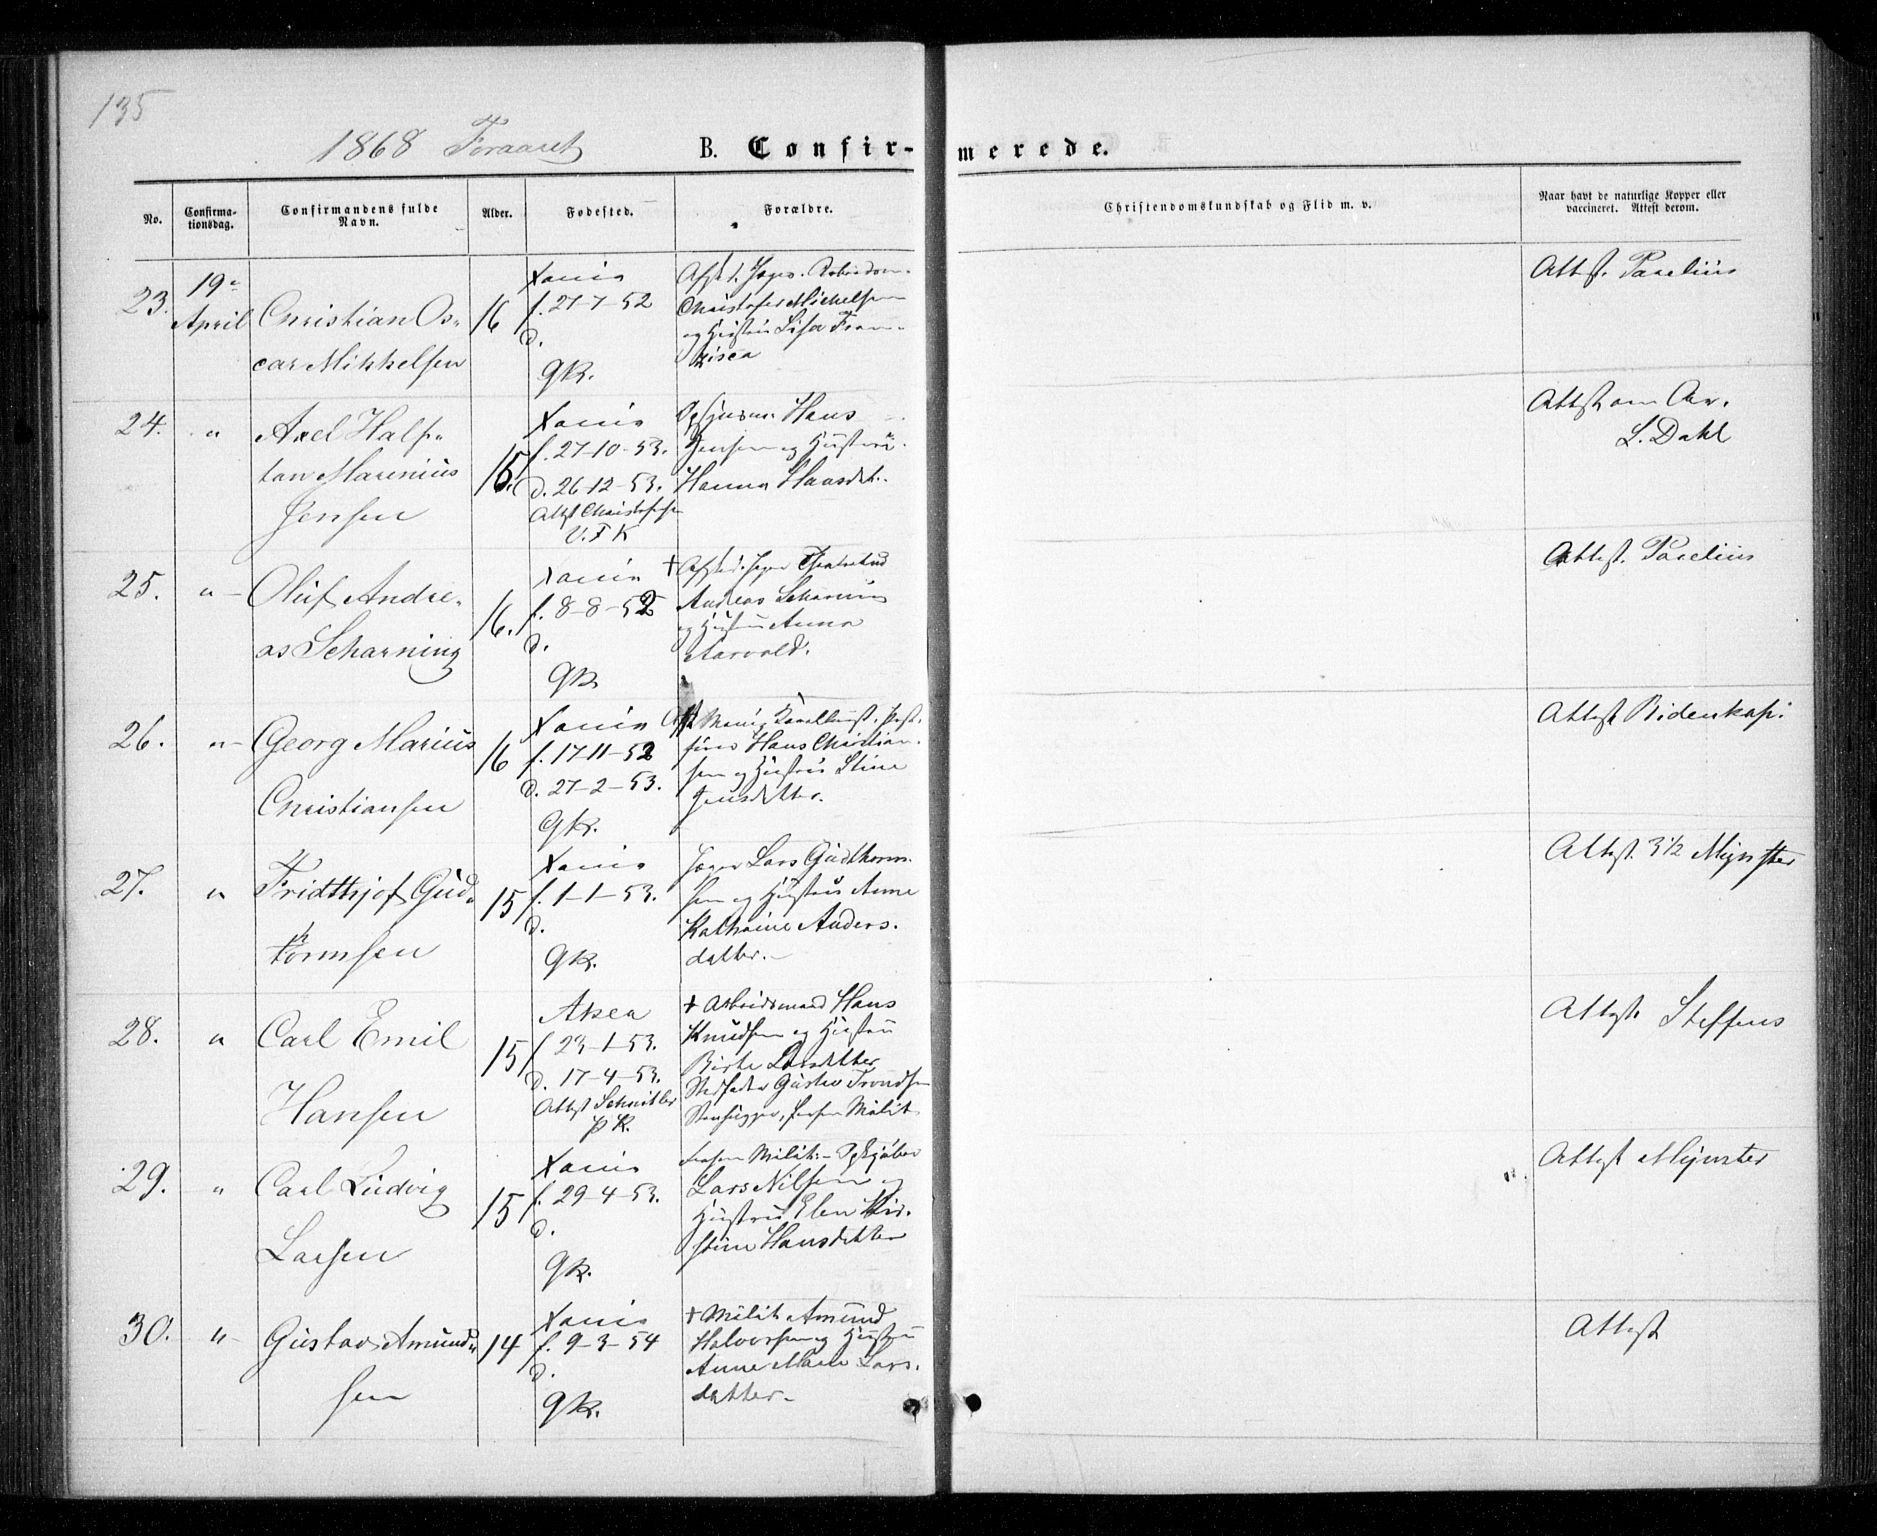 135
1868 Foraaret
B. Confir-
merede.
No.
Confirma-
tionsdag.
Confirmandens fulde
Navn.
Alder.
Fødested.
Forældre.
Christendomskundskab og Flid m. v.
Naar havt de naturlige Kopper eller
vaccineret. Attest derom.
23. 19de April
Christian Os-
car Mikkelsen
16
Xania
f. 27-7-52
d.
GK.
Christofer Mikkelsen
og Hustru Lisa Fran-
zisca
Attest. Paselius
24. "
Axel Half-
tan Marinius
Jensen
15.
Xania
f. 27-10-53.
d. 26-12-53.
Attst Christofersen
V.F.K
Opsynsm. Hans
Jensen og Hustru
Hanna Hansdt.
Attst om Av.
L. Dahl
25. "
Oluf Andre-
as Scharning
16.
Xania
f. 8-8-52
d.
GK
Andreas Scharning
og Hustru Anna
Aarvold.
Attest. Paselius
26. "
Georg Marius
Christiansen
16
Xania
f. 17-11-52
d. 27-2-53.
GK.
Hans Christian-
sen og Hustru Stine
Jensdatter.
Attest Bidenkap.
27. "
Fridthjof Gud-
tormsen
15
Xania
f. 1-1-53.
d.
GK.
Jæger Lars Gudthorm-
sen og Hustru Anne
Kathrine Anders-
datter.
Attest. 3 1/2 Mynster
28. "
Carl Emil
Hansen
15
Aker
f 23-1-53.
d. 17-4-53.
Attst Schnitler
p K.
+ Arbeidsmand Hans
Knudsen og Hustru
Birte Larsdatter
Stedfader Gustav Trondsen
Attest Steffens
29. "
Carl Ludvig
Larsen
15
Xania
f. 29-4-53.
d.
GK.
Lars Nilsen og
Hustru Elen Kir-
stine Hansdatter
Attest Mynster
30. "
Gustav Amund-
sen
14
Xania
f. 9-3-54
d.
GK.
+ Milit Amund
Halvorsen og Hustru
Anne Marie Lars-
datter.
Attest